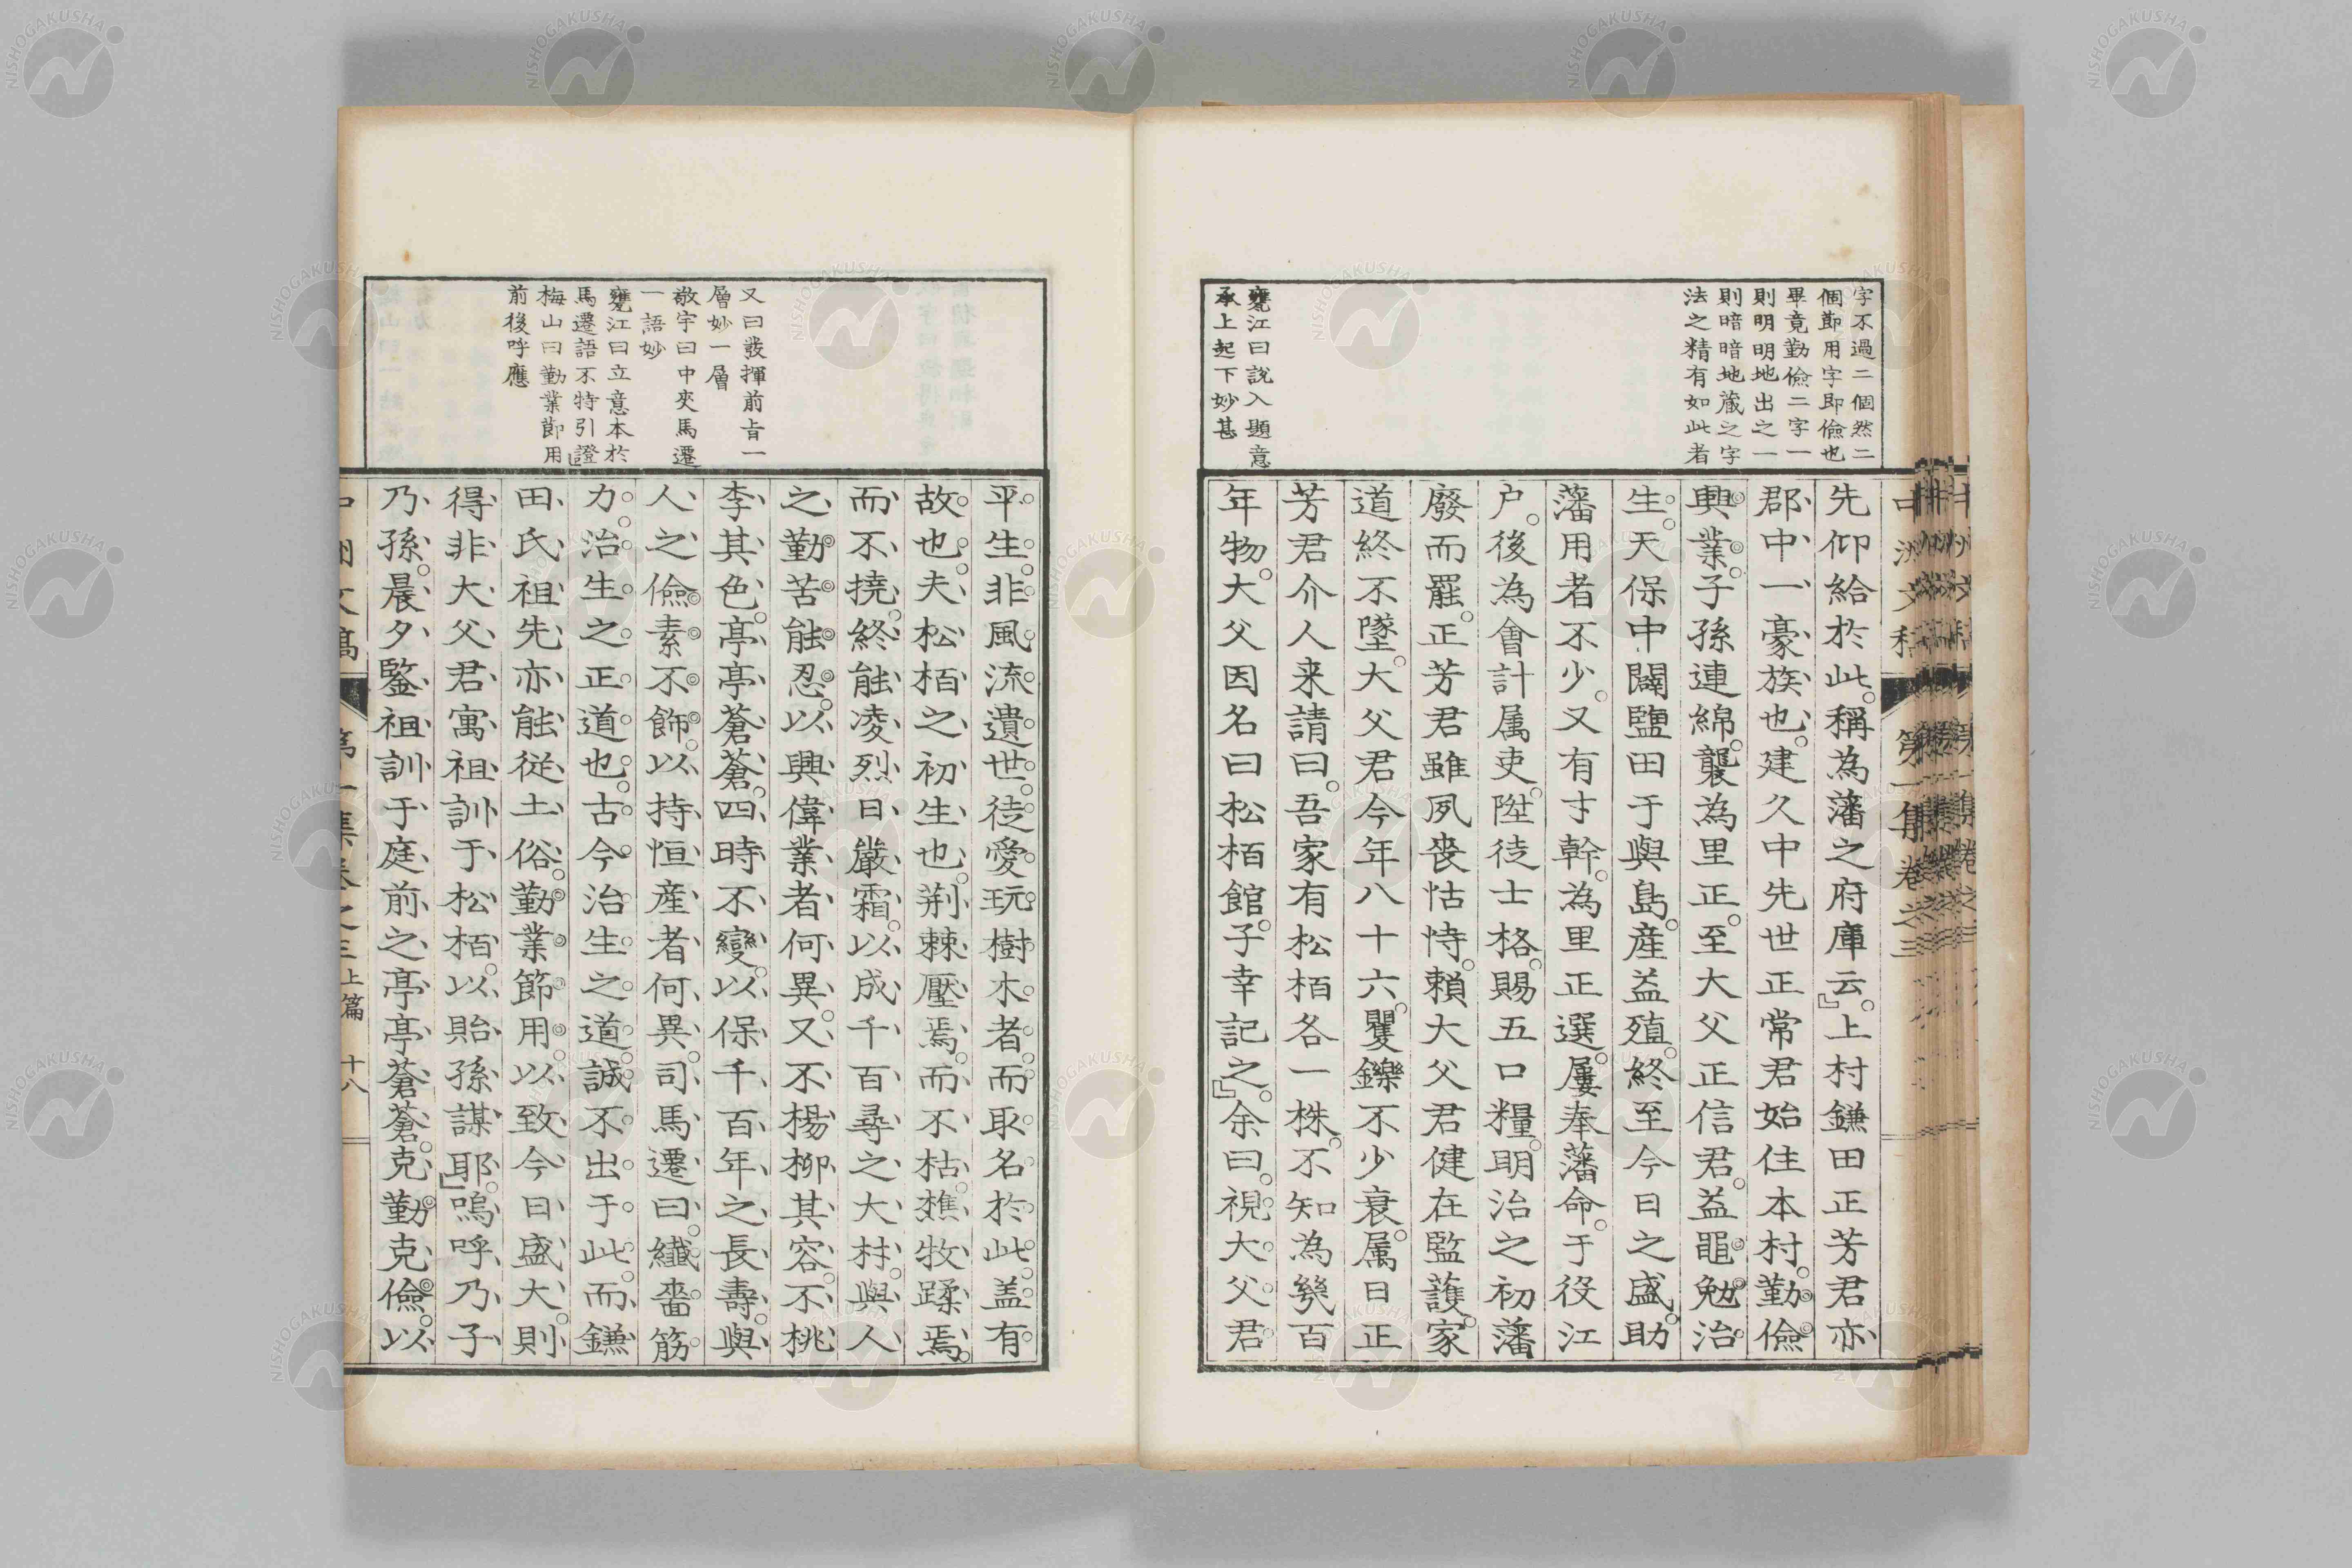 字不過二個然二
個節用字即儉也
畢竟勤儉二字一
則明明地出之一
則暗暗地蔵之字
法之精有如此者
甕江曰説入題意
承上起下妙甚
先仰給於此。稱為藩之府庫云。』上村鎌田正芳君亦
郡中一豪族也。建久中先世正常君始住本村。勤儉
興業。子孫連綿。襲為里正。至大父正信君。益黽勉治
生。天保中闢鹽田于與島。産益殖。終至今日之盛。助
藩用者不少。又有才幹。為里正選。屢奉藩命。于役江
户。後為會計属吏。陞徒士格。賜五口糧。明治之初藩
廢而罷。正芳君雖夙喪怙恃。頼大父君健在監護。家
道終不墜。大父君今年八十六。矍鑠不少衰。属日正
芳君介人来請曰。吾家有松栢各一株。不知為幾百
年物。大父因名曰松栢館。子幸記之。』余曰。視大父君
中洲文稿 第一集卷之三
又曰發揮前旨一
層妙一層
敬宇曰中夾馬遷
一語妙
甕江曰立意本於
馬遷語不特引證
梅山曰勤業節用
前後呼應
平生。非風流遺世。徒愛玩樹木者。而取名於此。盖有
故也。夫松栢之初生也。荆棘壓焉。而不枯。樵牧蹂焉。
而不撓。終能凌烈日嚴霜。以成千百尋之大材。與人
之勤苦能忍。以興偉業者何異。又不楊柳其容。不桃
李其色。亭亭蒼蒼。四時不變。以保千百年之長壽。與
人之儉素不飾。以持恒産者何異。司馬遷曰。纎嗇筋
力。治生之正道也。古今治生之道。誠不出于此。而鎌
田氏祖先亦能従土俗。勤業節用。以致今日盛大。則
得非大父君寓祖訓于松栢。以貽孫謀耶。』嗚呼乃子
乃孫。晨夕鑒祖訓于庭前之亭亭蒼蒼。克勤克儉。以
第一集卷之三 上篇 十八
NISHOGAKUSHA